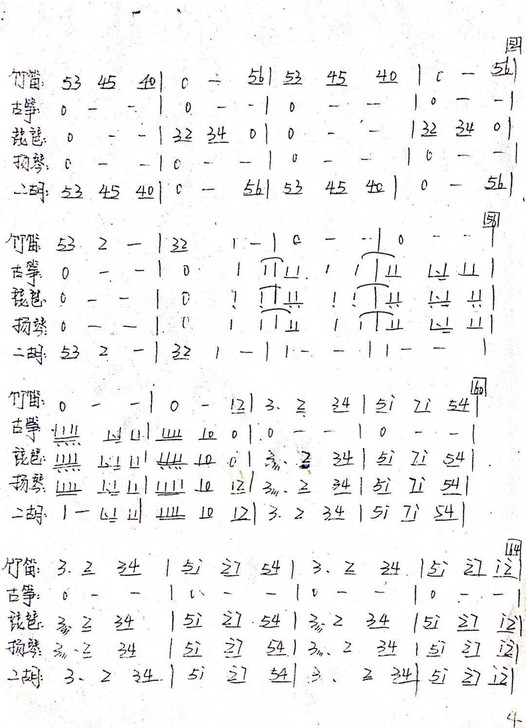 54
竹笛: 53 45 40 | 0 - 56 | 53 45 40 | 0 - 56 |
古筝: 0 - - | 0 - - | 0 - - | 0 - - |
琵琶: 0 - - | 32 34 0 | 0 - - | 32 34 0 |
扬琴: 0 - - | 0 - - | 0 - - | 0 - - |
二胡: 53 45 40 | 0 - 56 | 53 45 40 | 0 - 56 |
58
竹笛: 53 2 - | 32 1 - | 0 - - | 0 - - |
古筝: 0 - - | 0 1 1 | 1 11 1 1 | 11 1.1 11 |
琵琶: 0 - - | 0 1 1 | 1 11 1 1 | 11 1.1 11 |
扬琴: 0 - - | 0 1 1 | 1 11 1 1 | 11 1.1 11 |
二胡: 53 2 - | 32 1 - | 1 - - | 1 - - |
60
竹笛: 0 - - | 0 - 12 | 3. 2 34 | 5i 7i 54 |
古筝 1111 1.1 11 | 1111 10 0 | 0 - - | 0 - - |
琵琶: 1111 1.1 11 | 1111 10 0 | 3. 2 34 | 5i 7i 54 |
扬琴: 1111 1.1 11 | 1111 10 12 | 3. 2 34 | 5i 7i 54 |
二胡: 1 - 1.1 11 | 1111 10 12 | 3. 2 34 | 5i 7i 54 |
64
竹笛: 3. 2 34 | 5i 27 54 | 3. 2 34 | 5i 27 i2 |
古筝: 0 - - | 0 - - | 0 - - | 0 - - |
琵琶: 3. 2 34 | 5i 27 54 | 3. 2 34 | 5i 27 i2 |
扬琴: 3. 2 34 | 5i 27 54 | 3. 2 34 | 5i 27 i2 |
二胡: 3. 2 34 | 5i 27 54 | 3. 2 34 | 5i 27 i2 |
4